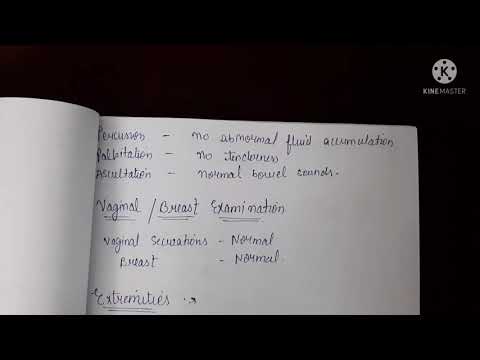 KINEMASTER
Percusion - no abnormal fluid accumulation
Palbitation - no tenderness
Ascultation - normal bowel sounds.
Vaginal / Breast Examination
Vaginal secreations - Normal
Breast - Normal.
Extremities :-